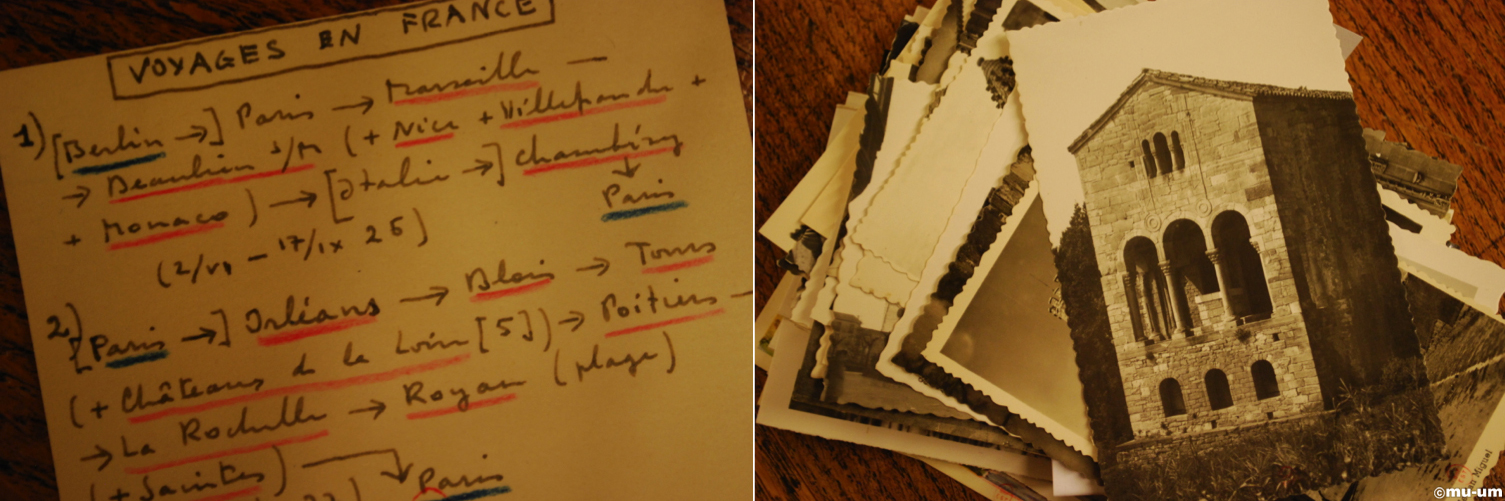 VOYAGES EN FRANCE
1) [Berlin →] Paris → Marseille —
→ Beaulieu s/M (+ Nice + Villefranche +
+ Monaco) → [Italie →] Chambéry
↓
Paris
(2/VI - 17/IX 25)
2) [Paris →] Orléans → Blois → Tours
(+ Châteaux de la Loire [5]) → Poitiers —
→ La Rochelle → Royan (plage)
(+ Saintes) → Paris
Miguel
©mu-um